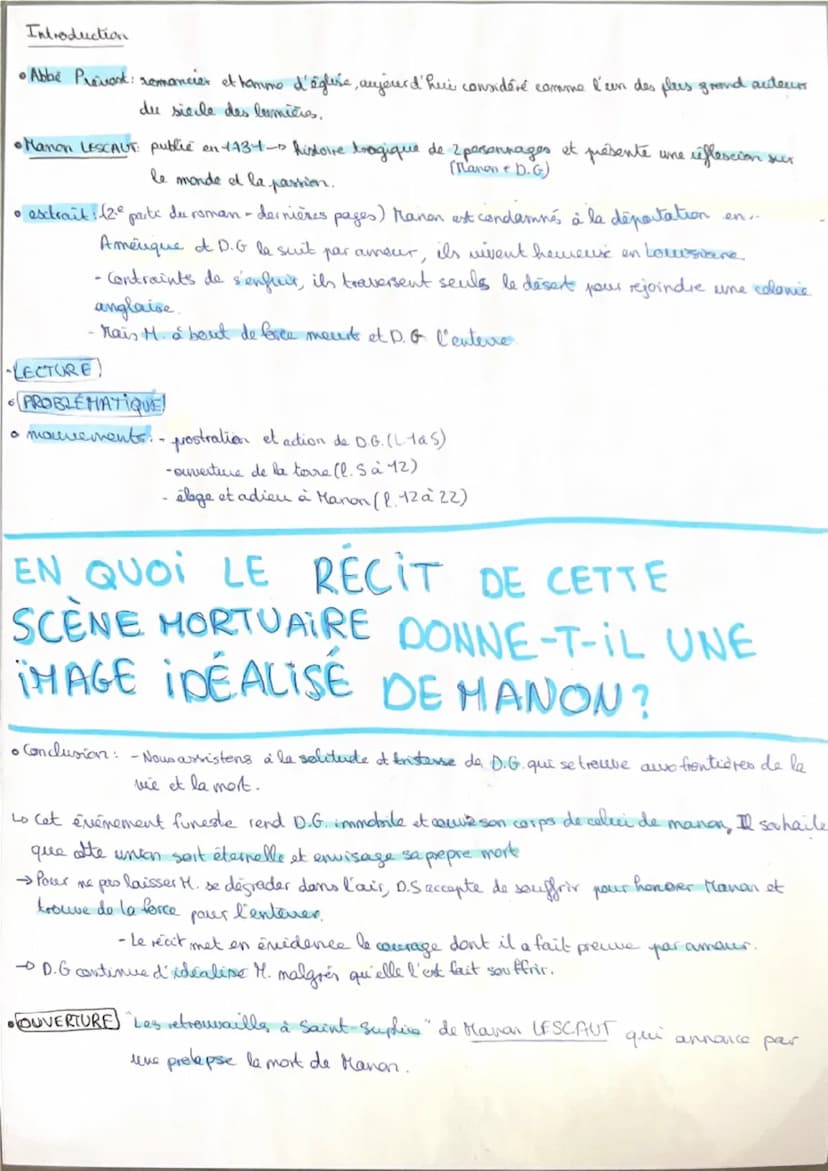 Introduction
• Abbé Prévost : romancier et homme d'église, aujourd'hui considéré comme l'un des plus grand auteurs
du siècle des lumières.
• Manon LESCAUT : publié en 1731 → histoire tragique de 2 personnages et présente une réflexcion sur
(Manon + D.G)
le monde et la passion.
• extrait : (2e partie du roman - dernières pages) Manon est condamnés à la déportation en
Amérique et D.G la suit par amour, ils vivent heureux en Louisiane.
- Contraints de s'enfuir, ils traversent seuls le désert pour rejoindre une colonie
anglaise.
- Mais M. à bout de force meurt et D.G l'enterre
- LECTURE
• PROBLÉMATIQUE
• mouvements : - prostration et action de D.G. (L.1 à 5)
- ouverture de la terre (l. 5 à 12)
- éloge et adieu à Manon (l. 12 à 22)
EN QUOI LE RÉCIT DE CETTE
SCÈNE MORTUAIRE DONNE-T-IL UNE
IMAGE IDÉALISÉ DE MANON ?
• Conclusion : - Nous assistons à la solitude et tristesse de D.G. qui se trouve aux frontières de la
vie et la mort.
↳ Cet événement funeste rend D.G. immobile et couvre son corps de celui de manon, Il souhaite
que cette union soit éternelle et envisage sa propre mort
→ Pour ne pas laisser M. se dégrader dans l'air, D.S accepte de souffrir pour honorer Manon et
trouve de la force pour l'enterrer.
- Le récit met en évidence le courage dont il a fait preuve par amour.
→ D.G continue d'idéalise M. malgrés qu'elle l'est fait souffrir.
• OUVERTURE "Les retrouvailles à Saint-Suplice" de Manon LESCAUT qui annonce par
une prolepse la mort de Manon.